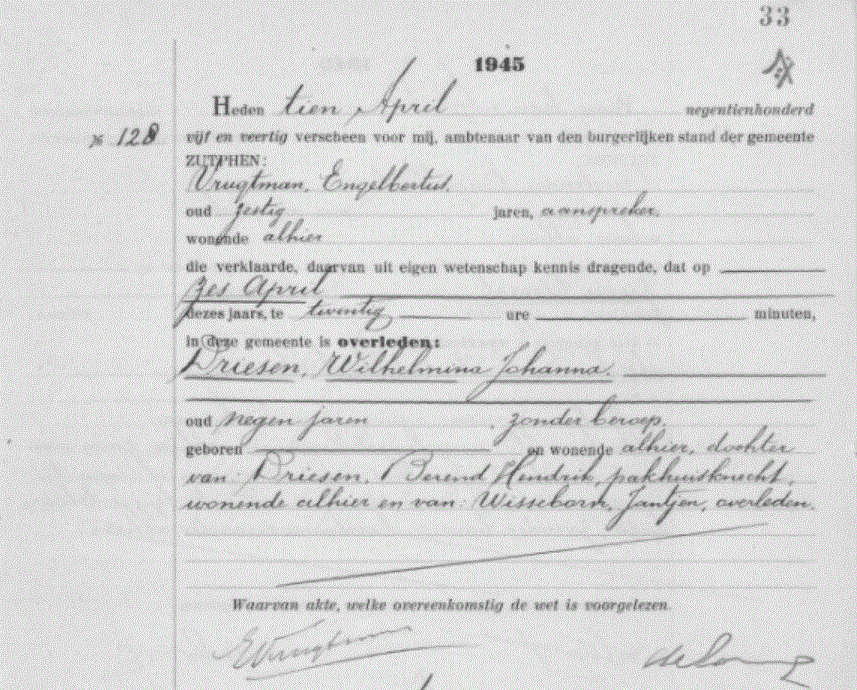 33
1945
Heden tien April negentienhonderd
№ 128 vijf en veertig verscheen voor mij, ambtenaar van den burgerlijken stand der gemeente
ZUTPHEN:
Vrugtman, Engelbertus.
oud zestig jaren, aanspreker,
wonende alhier
die verklaarde, daarvan uit eigen wetenschap kennis dragende, dat op
zes April
dezes jaars, te twintig ure minuten,
in deze gemeente is overleden:
Driesen, Wilhelmina Johanna.
oud negen jaren, zonder beroep,
geboren en wonende alhier, dochter
van: Driesen, Berend Hendrik, pakhuisknecht,
wonende alhier en van: Wisseborn, Jantjen, overleden.
Waarvan akte, welke overeenkomstig de wet is voorgelezen.
EVrugtman